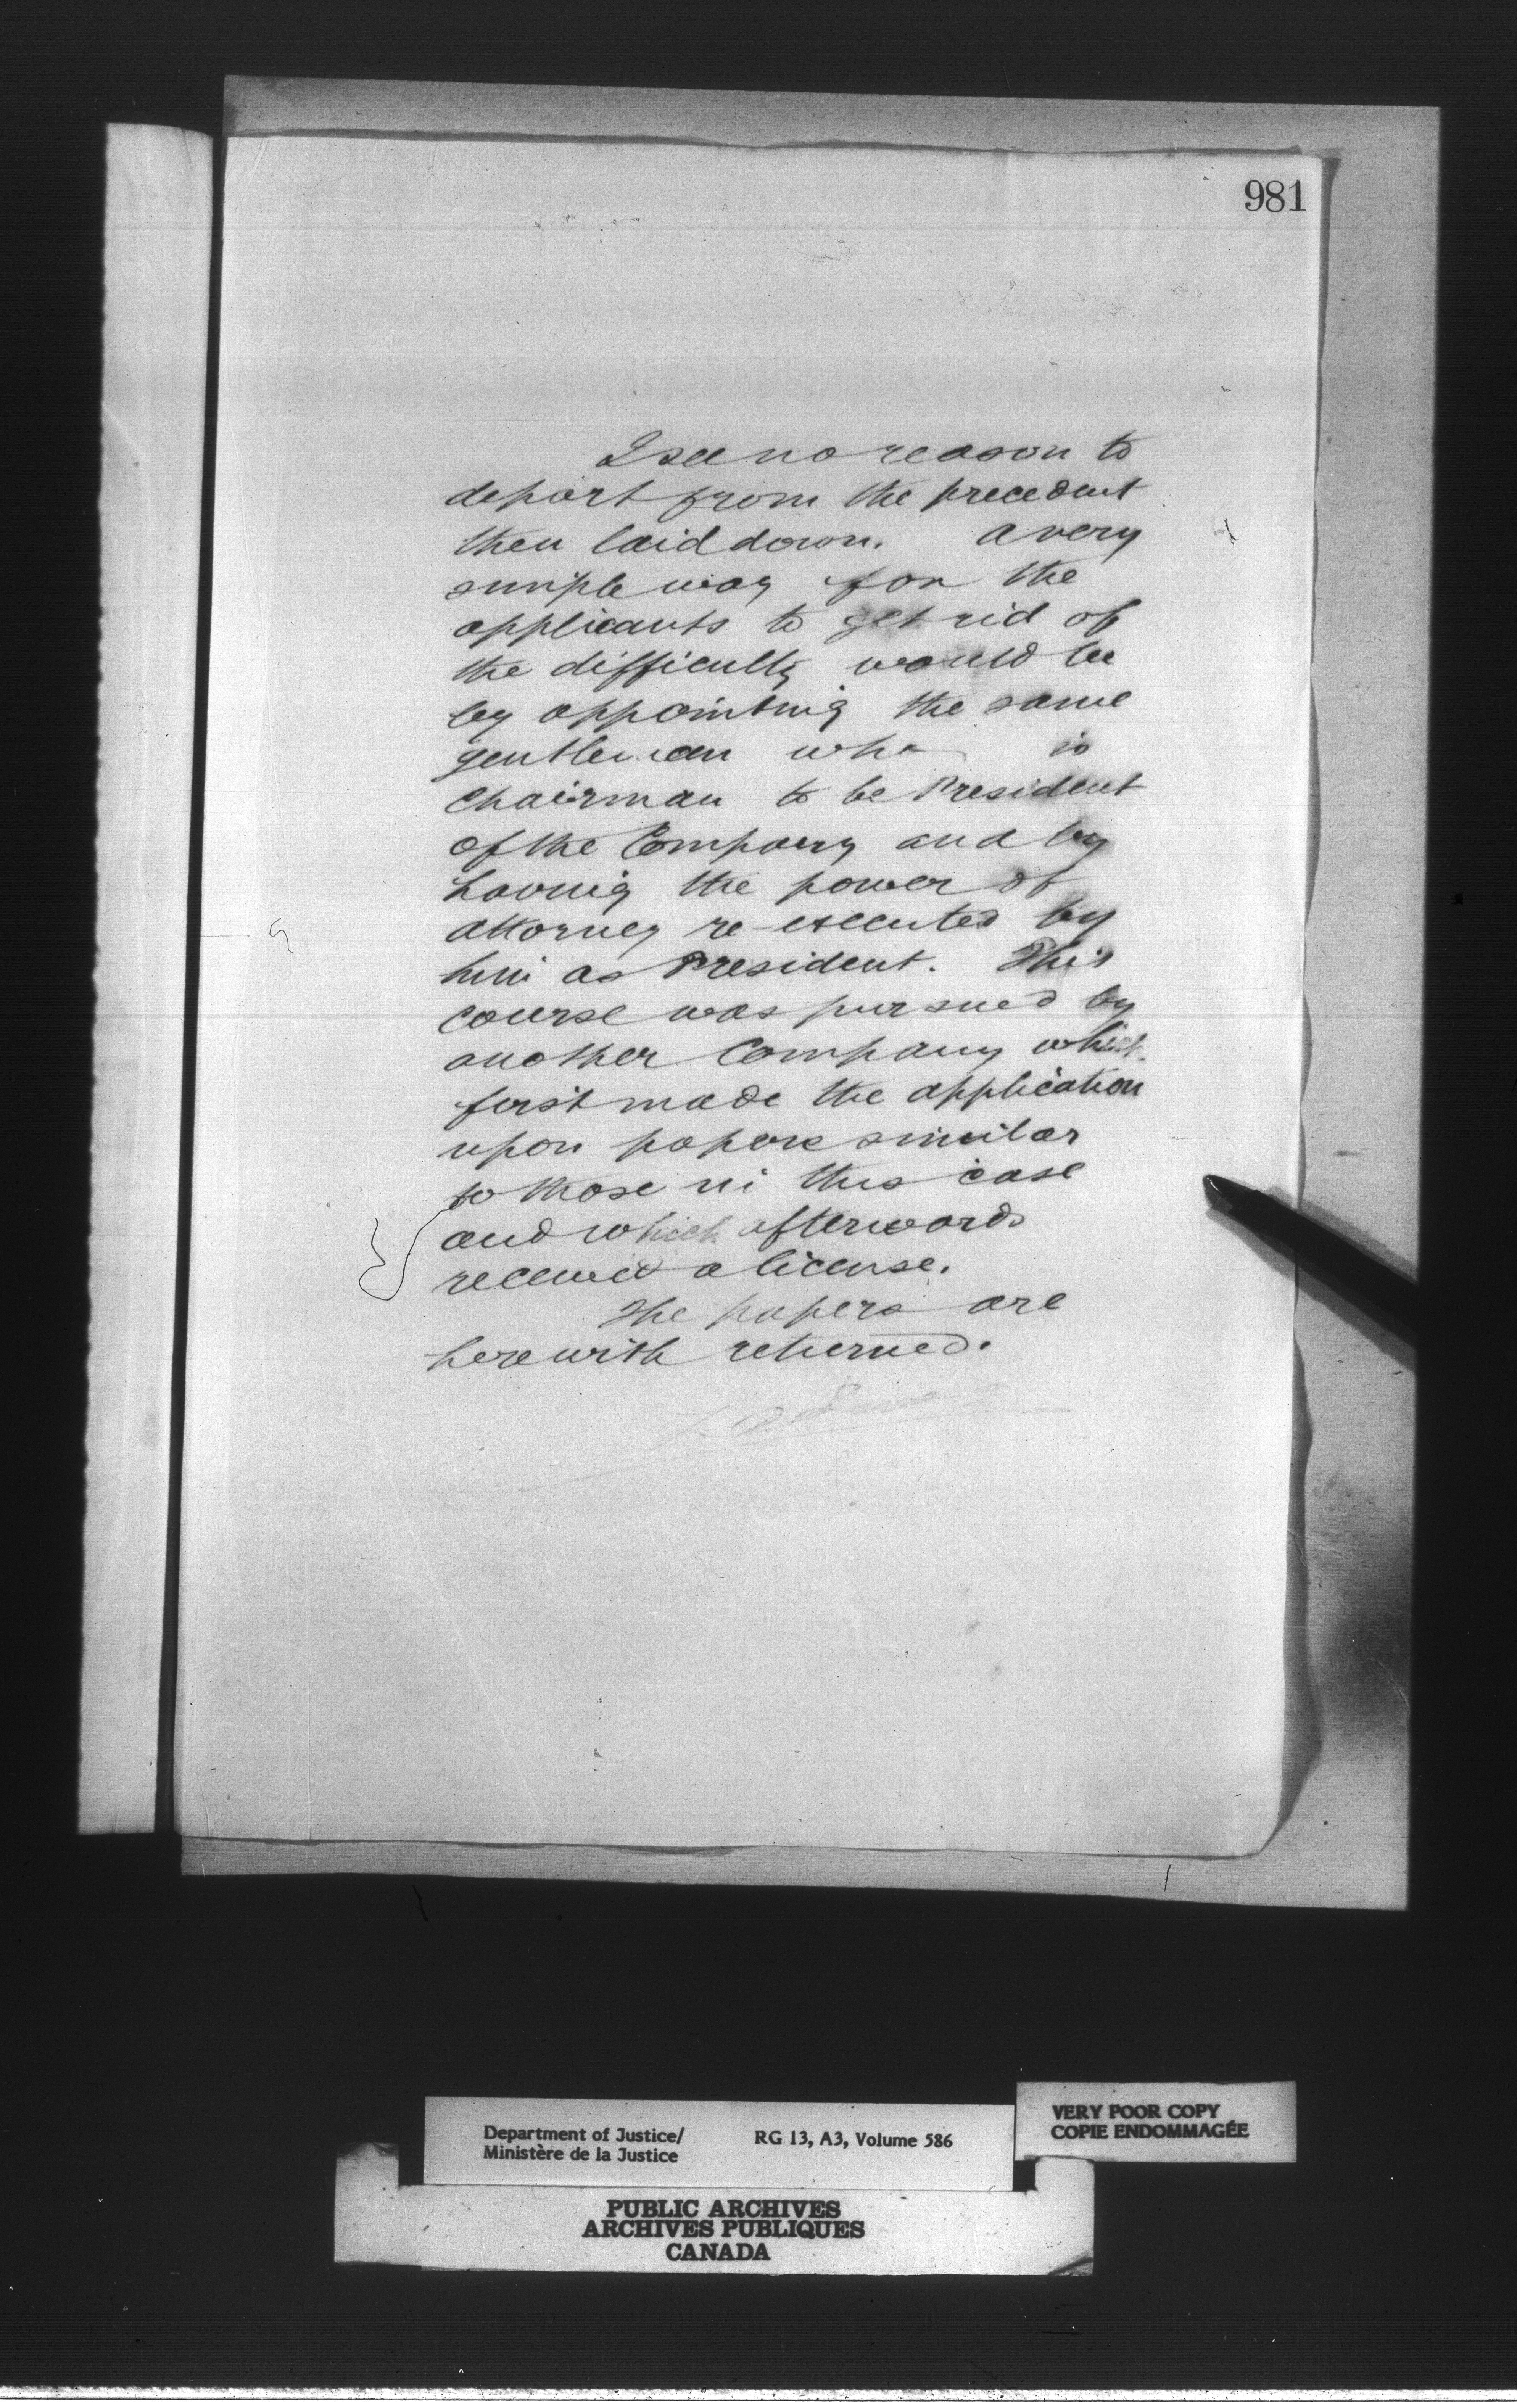 981
I see no reason to
depart from the precedent
then laid down. A very
simple way for the
applicants to get rid of
the difficulty would be
by appointing the same
gentleman who is
Chairman to be President
of the Company and by
having the power of
attorney re-executed by
him as President. This
course was pursued by
another Company which
first made the application
upon papers similar
to those in this case
and which afterwards
received a license.
The papers are
herewith returned.
Department of Justice/
Ministère de la Justice
RG 13, A3, Volume 586
VERY POOR COPY
COPIE ENDOMMAGÉE
PUBLIC ARCHIVES
ARCHIVES PUBLIQUES
CANADA